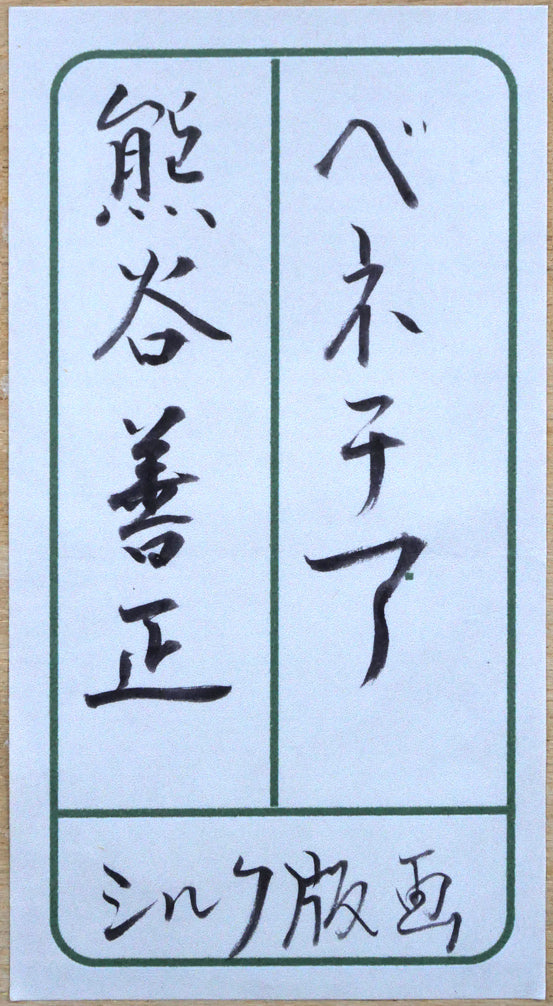 ベネチア
熊谷善正
シルク版画